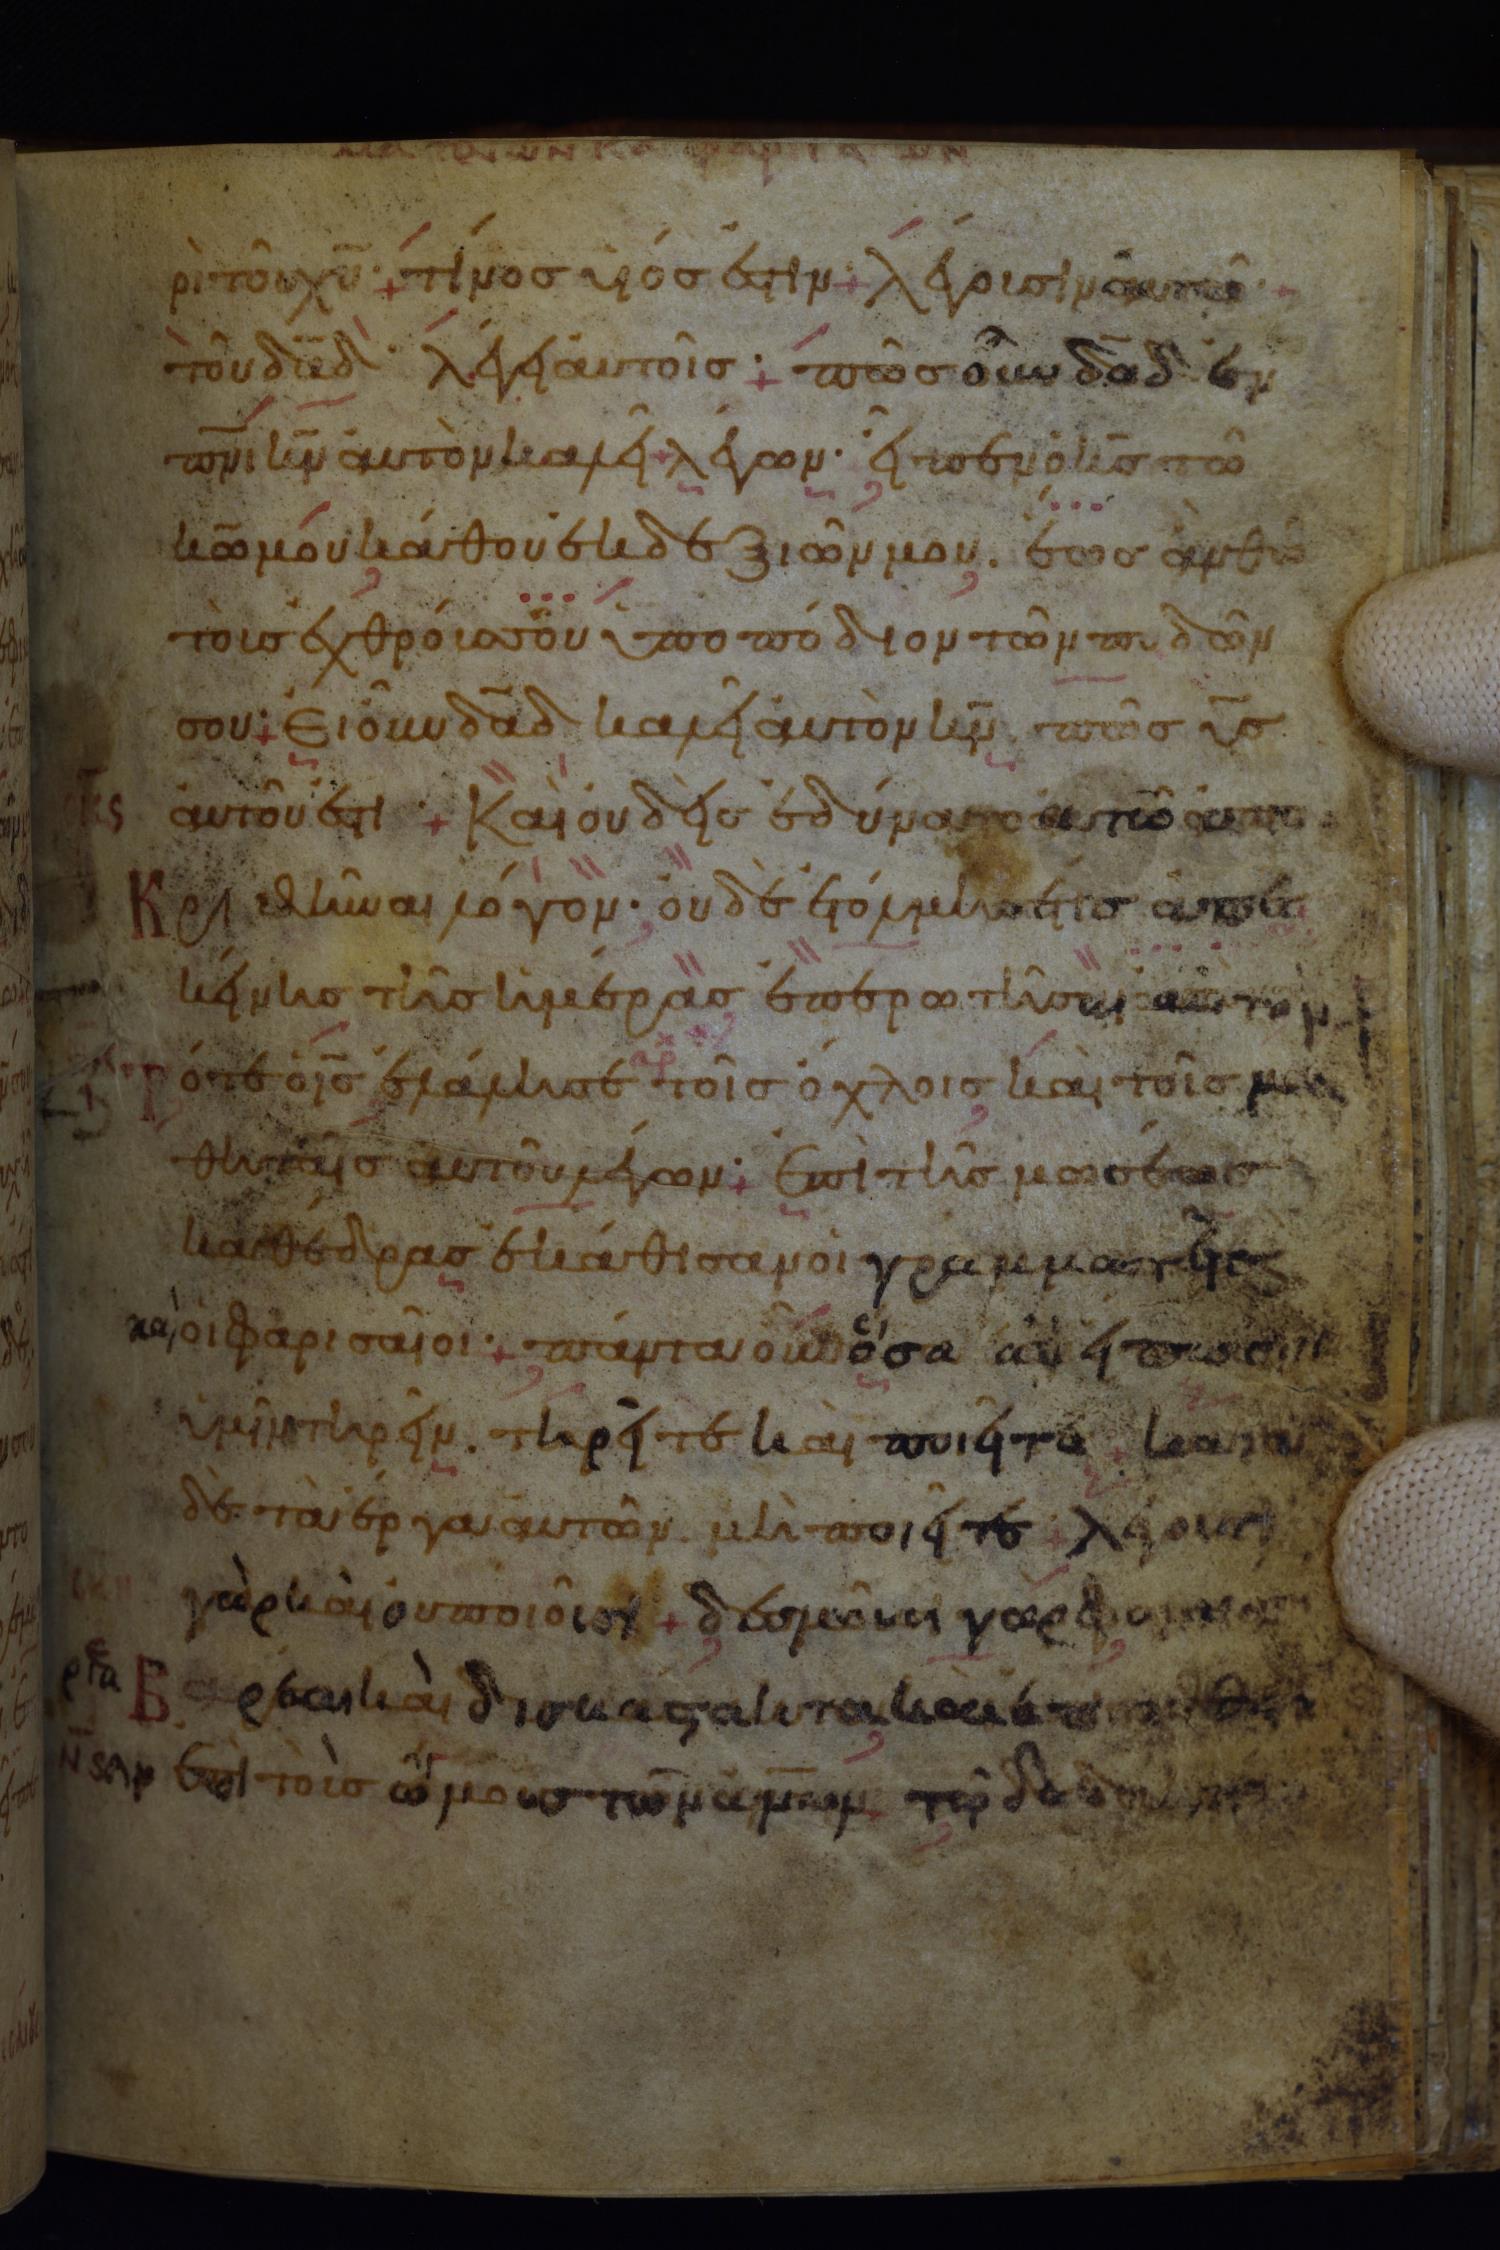 ρὶ τοῦ χυ̅· τίνος υἱός ἐστιν· λέγουσιν αὐτῶ·
τοῦ δα̅δ· λέγει αὐτοῖς· πῶς οὖν δα̅δ ἐν
πνι̅ κν̅ αὐτὸν καλεῖ λέγων· εἶπεν ὁ κς̅ τῶ
κω̅ μου κάθου ἐκ δεξιῶν μου. ἕως ἂν θῶ
τοὺς ἐχθρούς σου ὑποπόδιον τῶν ποδῶν
σου· Εἰ οὖν δα̅δ καλεῖ αὐτὸν κν̅, πῶς υς̅
αὐτοῦ ἐστι· Καὶ οὐδεὶς ἐδύνατο αὐτῶ ἀπο
κριθῆναι λόγον· οὐδὲ ἐτόλμησέ τις ἀπ'
ἐκείνης τῆς ἡμέρας ἐπερωτῆσαι αὐτόν
Τότε ὁ ις̅ ἐλάλησε τοῖς ὄχλοις καὶ τοῖς μα
θηταῖς αὐτοῦ λέγων· Ἐπὶ τῆς μωσέως
καθέδρας ἐκάθισαν οἱ γραμματεῖς
καὶ οἱ φαρισαῖοι· πάντα οὖν ὅσα ἂν εἴπωσιν
ὑμῖν τηρεῖν. τηρεῖτε καὶ ποιεῖτε κατὰ
δὲ τὰ ἔργα αὐτῶν μὴ ποιεῖτε· λέγουσι
γὰρ καὶ οὐ ποιοῦσι· δεσμεύουσι γὰρ φορτία
βαρέα καὶ δυσβάστακτα, καὶ ἐπιτιθέασιν
ἐπὶ τοὺς ὤμους τῶν ἀν̅ων τῶ δὲ δακτύλω